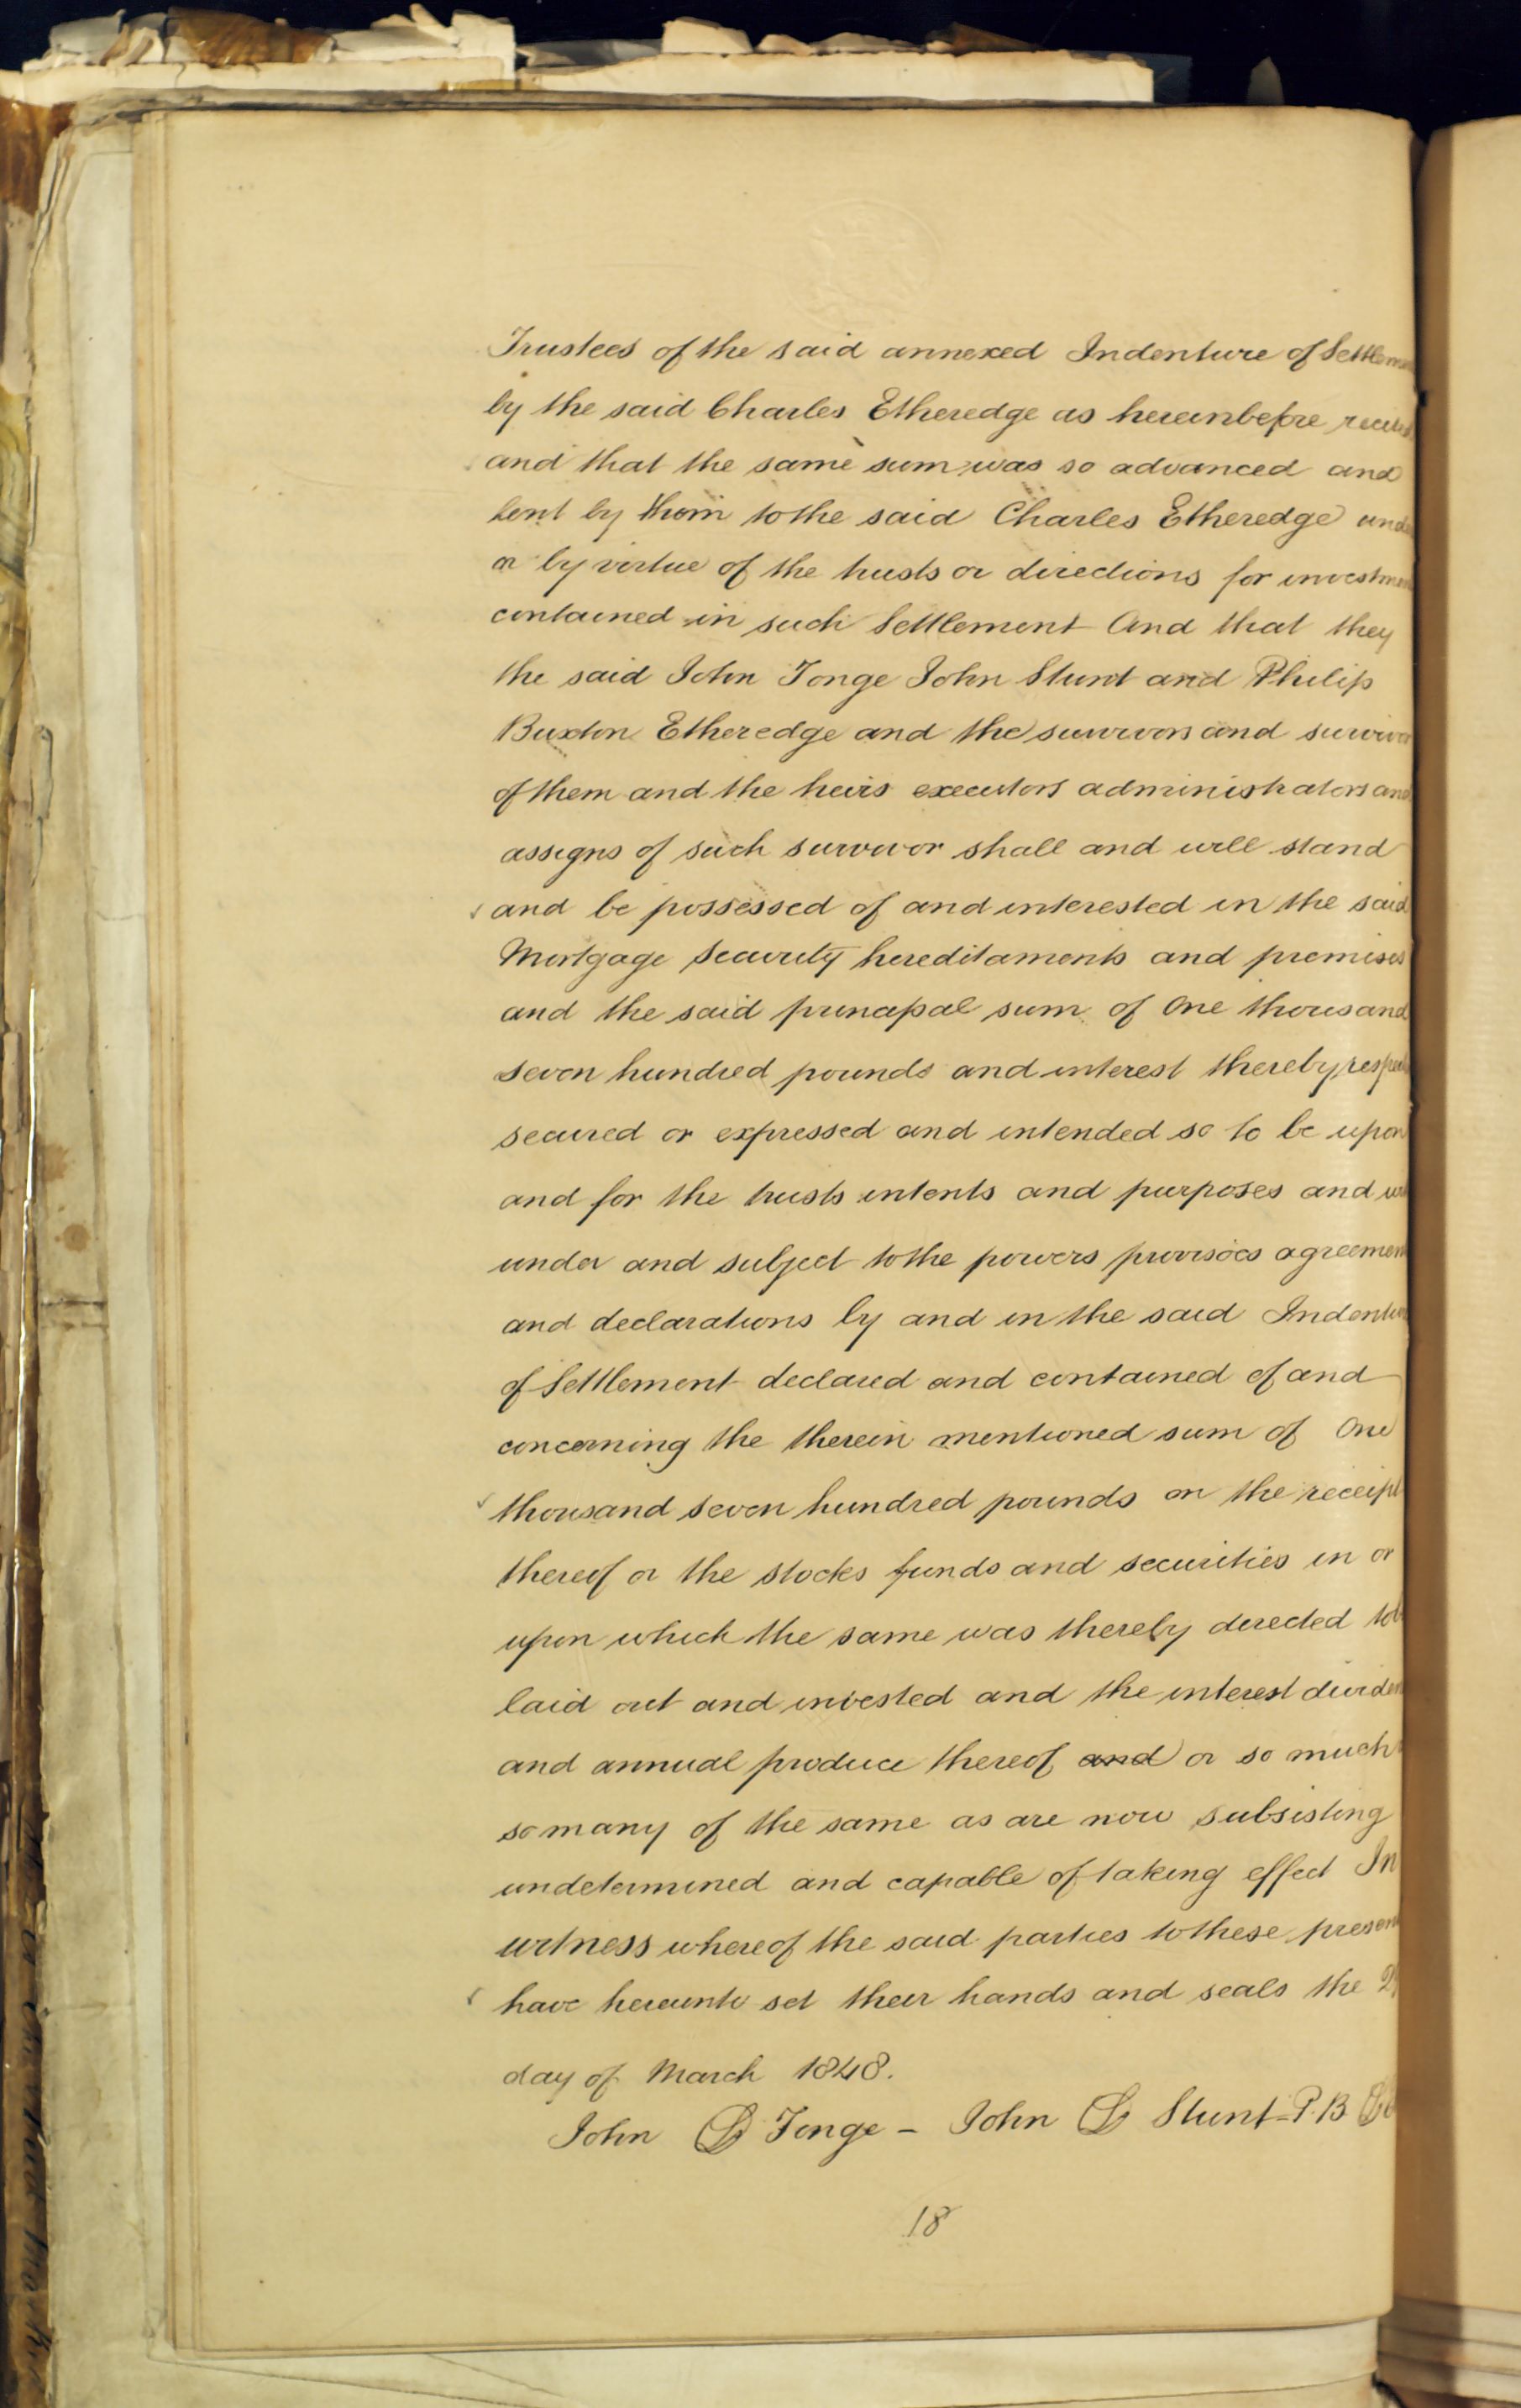 Trustees of the said annexed Indenture of Settlem
by the said Charles Etheredge as hereinbefore recited
and that the same sum was so advanced and
lent by them to the said Charles Etheredge unde
or by virtue of the trusts or directions for investmen
contained in such Settlement And that they
the said John Tonge John Stunt and Philip
Buxton Etheredge and the survivors and survivor
of them and the heirs executors administrators and
assigns of such survivor shall and will stand
and be possessed of and interested in the said
Mortgage security hereditaments and premises
and the said principal sum of One thousand
seven hundred pounds and interest thereby respec
secured or expressed and intended so to be upon
and for the trusts intents and purposes and
under and subject to the powers provisoes agreemen
and declarations by and in the said Indentur
of Settlement declared and contained of and
concerning the therein mentioned sum of One
thousand seven hundred pounds on the receipt
thereof or the stocks funds and securities in or
upon which the same was thereby directed to b
laid out and invested and the interest dividen
and annual produce thereof and or so much
so many of the same as are now subsisting
undetermined and capable of taking effect In
witness whereof the said parties to these presen
have hereunto set their hands and seals the 2
day of March 1848.
John LS Tonge – John LS Stunt – P. B LS
18